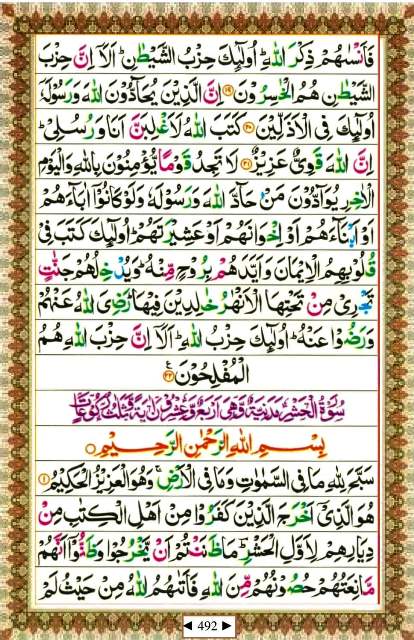 فَاَنْسٰىهُمْ ذِكْرَ اللّٰهِ ؕ اُولٰٓئِكَ حِزْبُ الشَّيْطٰنِ ؕ اَلَاۤ اِنَّ حِزْبَ
الشَّيْطٰنِ هُمُ الْخٰسِرُوْنَ ﴿۱۹﴾ اِنَّ الَّذِيْنَ يُحَآدُّوْنَ اللّٰهَ وَرَسُوْلَهٗۤ
اُولٰٓئِكَ فِى الْاَذَلِّيْنَ ﴿۲۰﴾ كَتَبَ اللّٰهُ لَاَغْلِبَنَّ اَنَا وَرُسُلِىْ ؕ
اِنَّ اللّٰهَ قَوِىٌّ عَزِيْزٌ ﴿۲۱﴾ لَا تَجِدُ قَوْمًا يُّؤْمِنُوْنَ بِاللّٰهِ وَالْيَوْمِ
الْاٰخِرِ يُوَآدُّوْنَ مَنْ حَآدَّ اللّٰهَ وَرَسُوْلَهٗ وَلَوْ كَانُوْۤا اٰبَآءَهُمْ
اَوْ اَبْنَآءَهُمْ اَوْ اِخْوَانَهُمْ اَوْ عَشِيْرَتَهُمْ ؕ اُولٰٓئِكَ كَتَبَ فِىْ
قُلُوْبِهِمُ الْاِيْمَانَ وَاَيَّدَهُمْ بِرُوْحٍ مِّنْهُ ؕ وَيُدْخِلُهُمْ جَنّٰتٍ
تَجْرِىْ مِنْ تَحْتِهَا الْاَنْهٰرُ خٰلِدِيْنَ فِيْهَا ؕ رَضِىَ اللّٰهُ عَنْهُمْ
وَرَضُوْا عَنْهُ ؕ اُولٰٓئِكَ حِزْبُ اللّٰهِ ؕ اَلَاۤ اِنَّ حِزْبَ اللّٰهِ هُمُ
الْمُفْلِحُوْنَ ﴿۲۲﴾
سُوْرَةُ الْحَشْرِ مَدَنِيَّةٌ وَّهِىَ اَرْبَعٌ وَّعِشْرُوْنَ اٰيَةً وَّثَلٰثُ رُكُوْعَاتٍ
بِسْمِ اللّٰهِ الرَّحْمٰنِ الرَّحِيْمِ
سَبَّحَ لِلّٰهِ مَا فِى السَّمٰوٰتِ وَمَا فِى الْاَرْضِ ۚ وَهُوَ الْعَزِيْزُ الْحَكِيْمُ ﴿۱﴾
هُوَ الَّذِىْۤ اَخْرَجَ الَّذِيْنَ كَفَرُوْا مِنْ اَهْلِ الْكِتٰبِ مِنْ
دِيَارِهِمْ لِاَوَّلِ الْحَشْرِ ؕ مَا ظَنَنْتُمْ اَنْ يَّخْرُجُوْا وَظَنُّوْۤا اَنَّهُمْ
مَّانِعَتُهُمْ حُصُوْنُهُمْ مِّنَ اللّٰهِ فَاَتٰىهُمُ اللّٰهُ مِنْ حَيْثُ لَمْ
◄ 492 ►